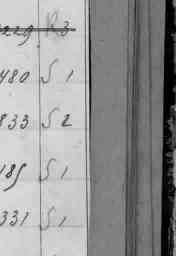 229 R3
480 S 1
833 S 2
185 S 1
331 S 1